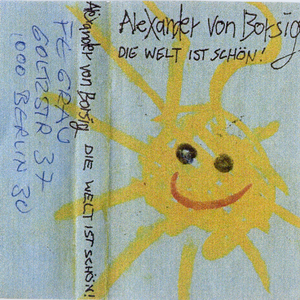 Alexander von Borsig
DIE WELT IST SCHÖN!
Alexander von Borsig DIE WELT IST SCHÖN!
GOLTZSTR 37
1000 BERLIN 30